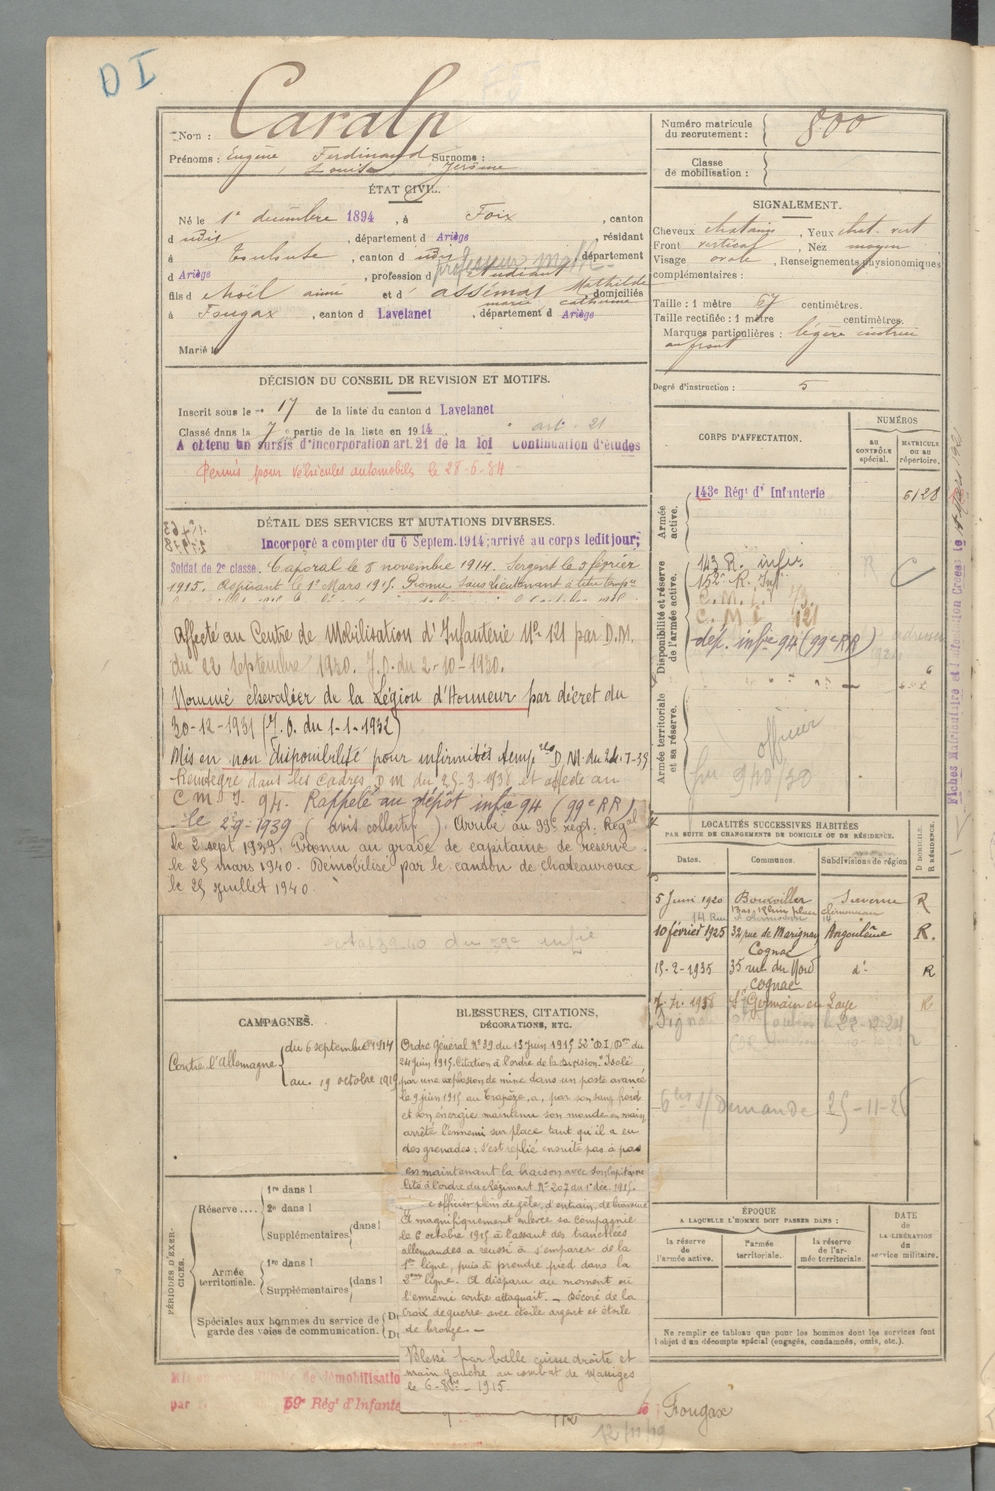 D I
Nom : Caralp
Prénoms : Eugène Ferdinand Surnoms :
Louis Jérôme
ÉTAT CIVIL.
Né le 1er décembre 1894, à Foix, canton
d udis, département d Ariège, résidant
à Toulouse, canton d udis, département
d Ariège, profession d étudiant professeur math.
fils d Noël aimé et d' Assémat Mathilde domiciliés
marie catherine
à Fougax, canton d Lavelanet, département d Ariège
Marié
DÉCISION DU CONSEIL DE REVISION ET MOTIFS.
Inscrit sous le n° 17 de la liste du canton d Lavelanet
Classé dans la 7e partie de la liste en 1914 art. 21
A obtenu un sursis d'incorporation art. 21 de la loi Continuation d'études
Permis pour véhicules automobiles le 28-6-84
DÉTAIL DES SERVICES ET MUTATIONS DIVERSES.
Incorporé a compter du 6 Septem. 1914; arrivé au corps ledit jour;
Soldat de 2e classe. Caporal le 8 novembre 1914. Sergent le 5 février
1915. Aspirant le 1er Mars 1915. Promu Sous Lieutenant à titre tempre
Affecté au Centre de Mobilisation d'Infanterie N° 121 par D.M.
du 22 Septembre 1930. J.O. du 2-10-1930.
Nommé chevalier de la Légion d'Honneur par décret du
30-12-1931 (J.O. du 1-1-1932)
Mis en non disponibilité pour infirmités temp res D.M. du 24-7-35
Réintégré dans les cadres D.M. du 25-3-1938 et affecté au
C.M.I. 94. Rappelé au dépôt infie 94 (99e RR)
le 2-9-1939 (avis collectif). Arrivé au 99e régt. Régal
le 2 sept 1939. Promu au grade de capitaine de réserve
le 25 mars 1940. Démobilisé par le canton de Chateauroux
le 25 juillet 1940.
CAMPAGNES.
Contre l'Allemagne { du 6 septembre 1914
au 19 octobre 1919
BLESSURES, CITATIONS,
DÉCORATIONS, ETC.
Ordre Général N° 29 du 13 Juin 1915 52e D.I. du
24 Juin 1915. Citation à l'ordre de la Division. "Isolé
par une explosion de mine dans un poste avancé
le 9 juin 1915 au Trapèze, a, par son sang froid
et son énergie maintenu son monde en mains
arrêté l'ennemi sur place tant qu'il a eu
des grenades ; s'est replié ensuite pas à pas
en maintenant la liaison avec son Capitaine
Cité à l'ordre du Régiment N° 207 du 1er déc. 1915.
officier plein de zèle, d'entrain, de bravoure
A magnifiquement enlevé sa compagnie
le 6 octobre 1915 à l'assaut des tranchées
allemandes a réussi à s'emparer de la
1ère ligne, puis à prendre pied dans la
2ème ligne. A disparu au moment où
l'ennemi contre attaquait. — Décoré de la
Croix de guerre avec étoile argent et étoile
de bronze. —
Blessé par balle cuisse droite et
main gauche au combat de Massiges
le 6-8bre-1915.
PÉRIODES D'EXERCICES.
Réserve....
1re dans l
2e dans l
Supplémentaires { dans l
Armée territoriale.
1re dans l
Supplémentaires { dans l
Spéciales aux hommes du service de
garde des voies de communication.
59e Régt d'Infante
Fougax
12/11/19
Numéro matricule
du recrutement : 800
Classe
de mobilisation :
SIGNALEMENT.
Cheveux chatains, Yeux chat. vert
Front vertical, Nez moyen
Visage ovale, Renseignements physionomiques
complémentaires :
Taille : 1 mètre 67 centimètres.
Taille rectifiée : 1 mètre centimètres.
Marques particulières : légère cicatrice
au front
Degré d'instruction : 5
CORPS D'AFFECTATION.
NUMÉROS
AU CONTRÔLE spécial.
MATRICULE OU AU répertoire.
Armée active.
143e Régt d'Infanterie 6128
Disponibilité et réserve de l'armée active.
143 R. infie
152e R. Inf
C.M.I.
C.M.I. 121
dép. infie 94 (99e RR)
Armée territoriale et sa réserve.
officier
LOCALITÉS SUCCESSIVES HABITÉES
PAR SUITE DE CHANGEMENTS DE DOMICILE OU DE RÉSIDENCE.
Dates. Communes. Subdivisions de région D DOMICILE. R RÉSIDENCE.
5 Juin 1920 Bouxviller Saverne R
10 février 1925 32 rue de Marignan Angoulême R.
Cognac
15-2-1935 35 rue du Nord d° R
Cognac
1938 St Germain en Laye R
Demande 25-11-2
ÉPOQUE
A LAQUELLE L'HOMME DOIT PASSER DANS :
la réserve de l'armée active.
l'armée territoriale.
la réserve de l'armée territoriale
DATE de LA LIBÉRATION du service militaire.
Ne remplir ce tableau que pour les hommes dont les services font
l'objet d'un décompte spécial (engagés, condamnés, omis, etc.).